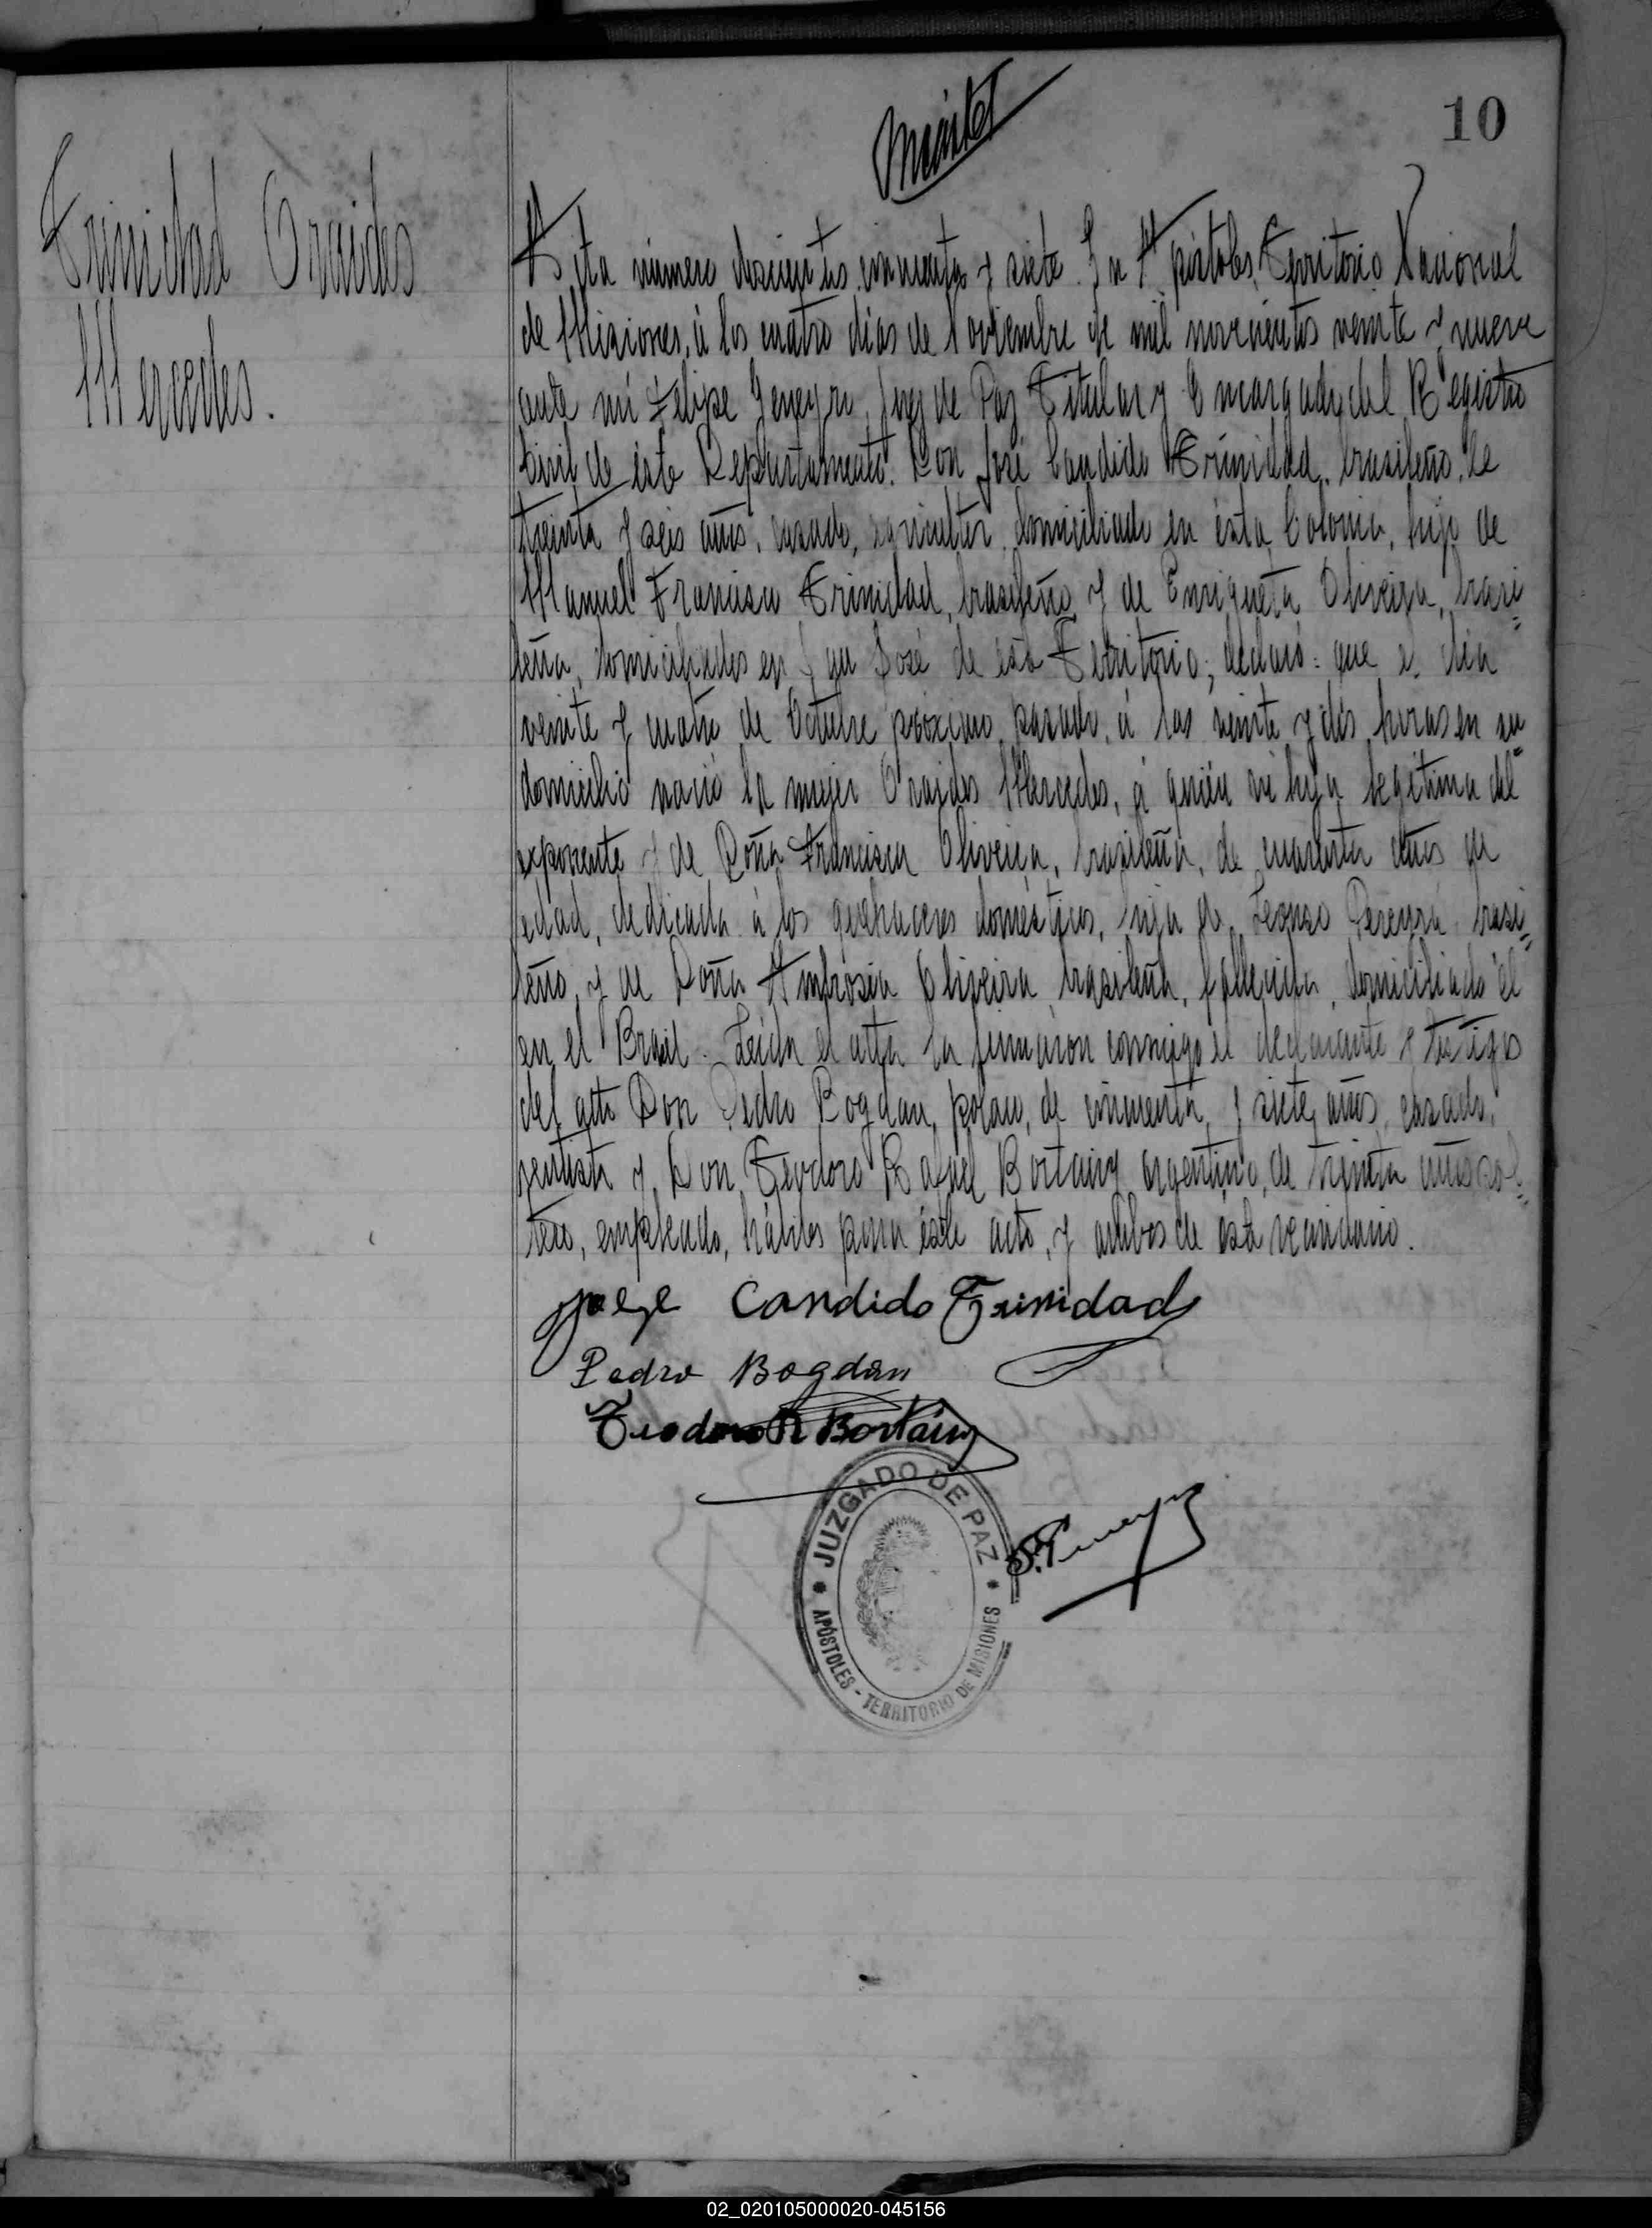 10
Trinidad Oraides
Mercedes.
Acta número doscientos cincuenta y siete. En Apóstoles, Territorio Nacional
de Misiones, á los cuatro días de Noviembre de mil novecientos veinte y nueve
ante mi Felipe Jeneyro, Juez de Paz Titular y Encargado del Registro
Civil de éste Departamento. Don José Candido Trinidad, brasileño, de
treinta y seis años, casado, agricultor, domiciliado en ésta Colonia, hijo de
Manuel Francisco Trinidad, brasileño y de Enriqueta Oliveira, brasi
leña, domiciliados en San José de éste Territorio; declaró: que el día
veinte y cuatro de Octubre próximo pasado, á las veinte y dos horas en su
domicilio nació la mujer Oraides Mercedes, á quién vi hija legítima del
exponente y de Doña Francisca Oliveira, brasileña, de cuarenta años de
edad, dedicada á los quehaceres domésticos, hija de Pereyra brasi
leño, y de Doña Ambrosia Oliveira brasileña, fallecida, domiciliado él
en el Brasil. Leída el acta la firmaron conmigo el declarante y testigos
del acto Don Pedro Bogdan, polaco, de cincuenta y siete años, casado,
rentista y Don Teodoro Rafael Bortainy argentino, de treinta años sol
tero, empleado, hábiles para éste acto, y ambos de este vecindario.
Candido Trinidad
Pedro Bogdan
Teodoro R Bortainy
JUZGADO DE PAZ
APÓSTOLES - TERRITORIO DE MISIONES
02_020105000020-045156